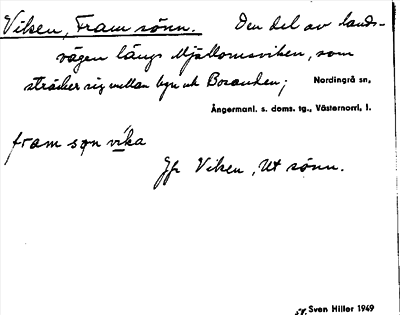 Viken, Fram sönn. Den del av lands-
vägen längs Mjällomsviken, som
sträcker sig mellan byn och Bosanden;
Nordingrå sn,
Ångermanl. s. doms. tg., Västernorrl. l.
fram sǫn vika
Jfr Viken, Ut sönn.
Sven Hiller 1949